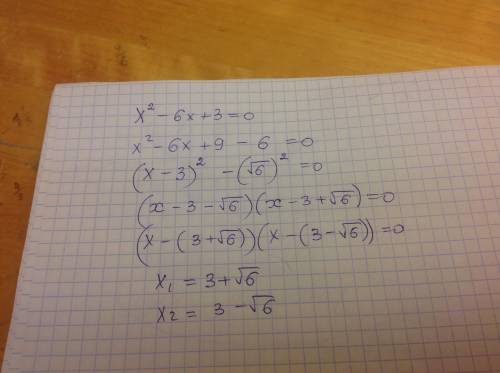 x² - 6x + 3 = 0
x² - 6x + 9 - 6 = 0
(x - 3)² - (√6)² = 0
(x - 3 - √6)(x - 3 + √6) = 0
(x - (3 + √6))(x - (3 - √6)) = 0
x₁ = 3 + √6
x₂ = 3 - √6